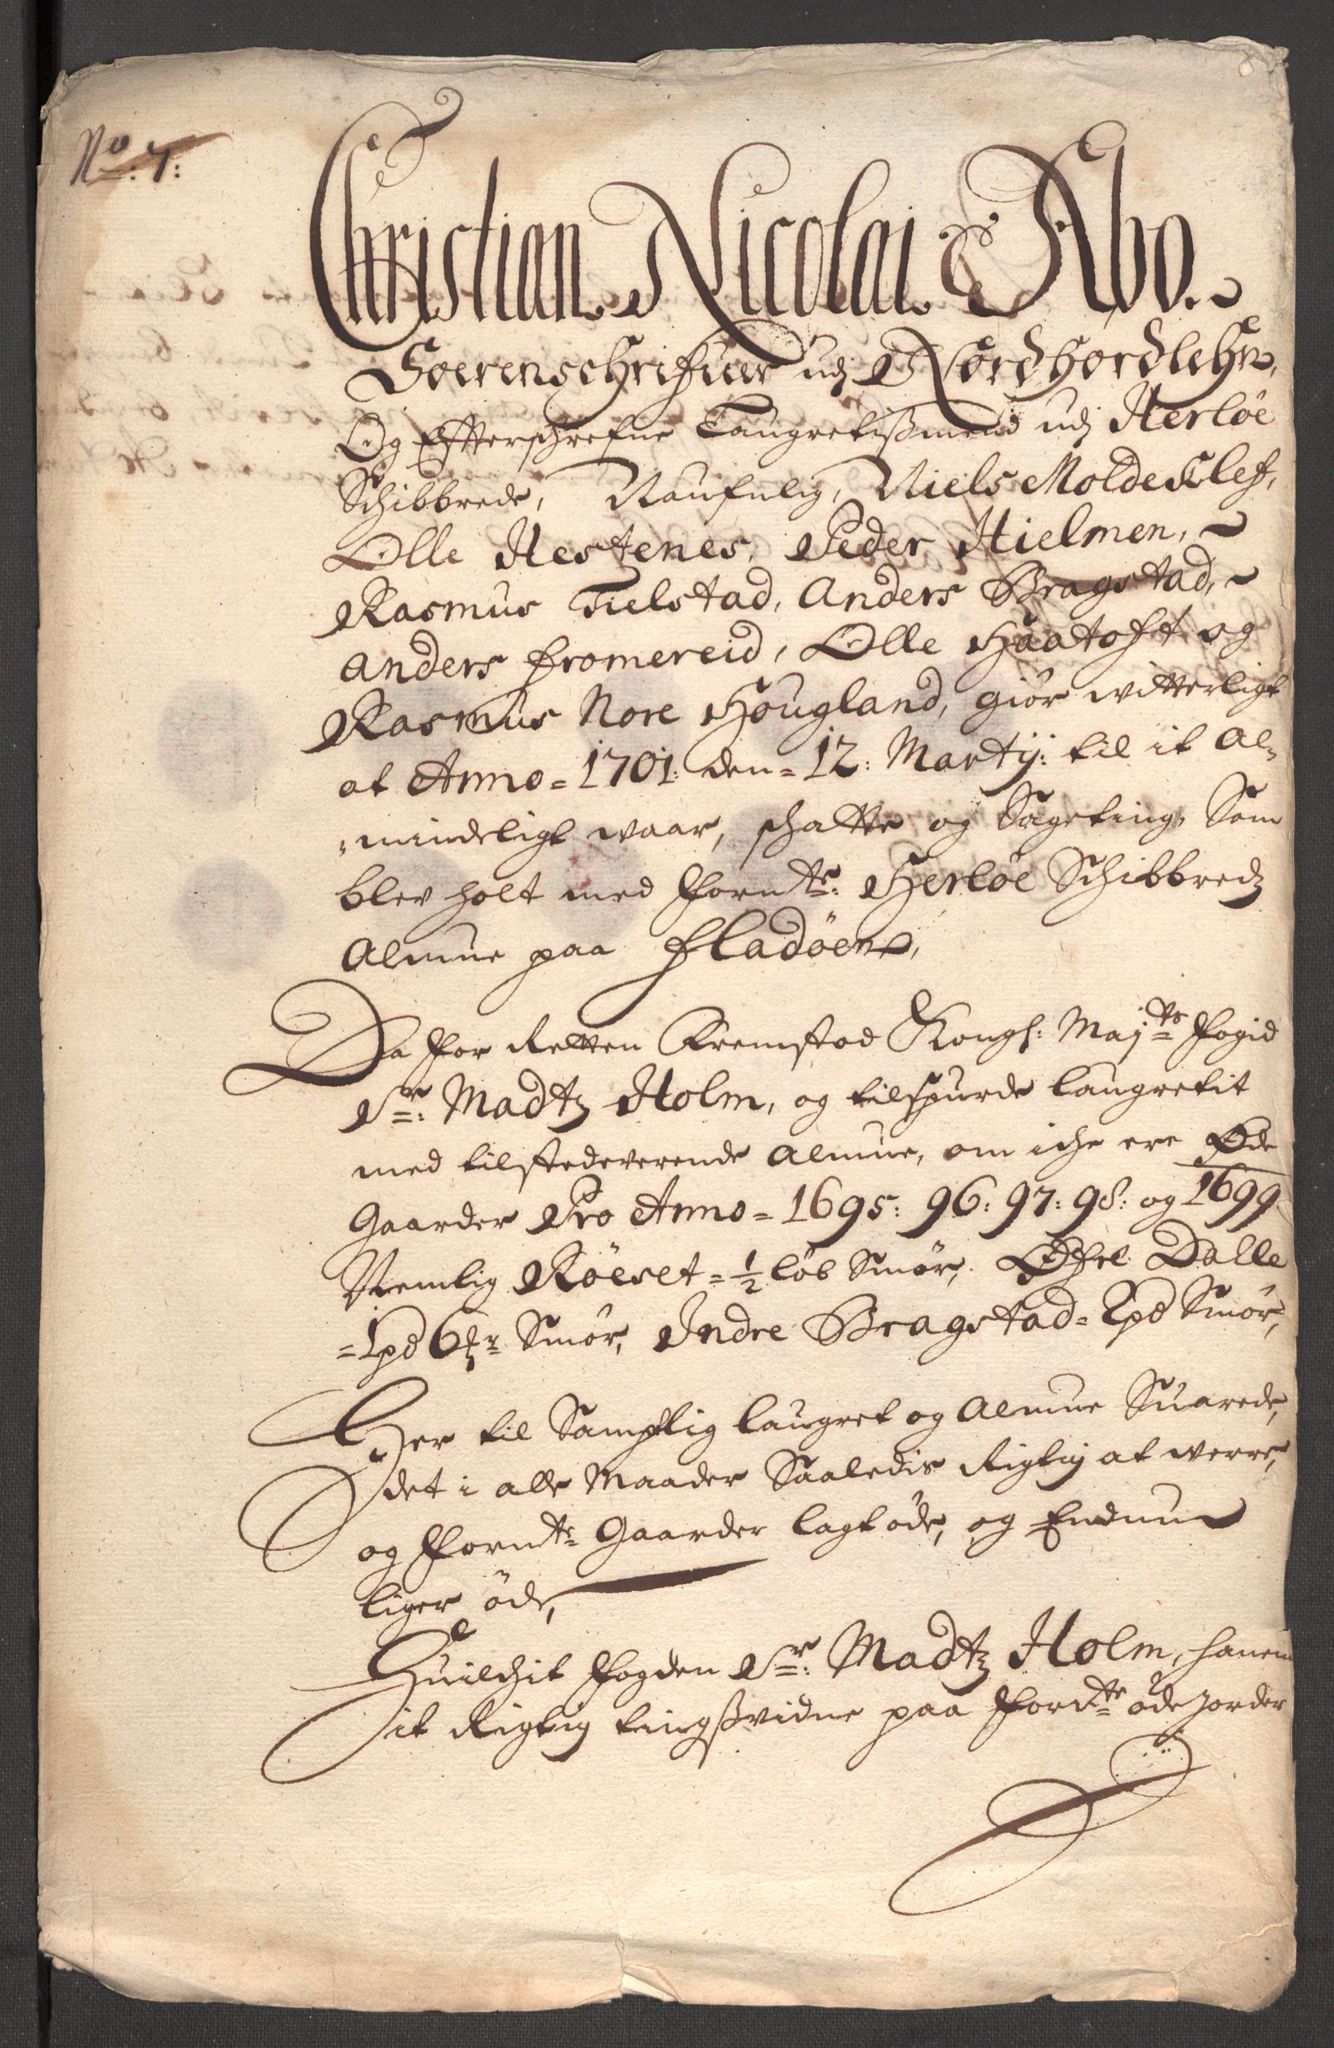 No: 7:
Christian Nicolai Abo.
Soerenschrifuer udj Nordhordlehn,
Og Efterschrefne Laugretißmend udj Herløe
Schibbrede, Naufnlig, Niels Moldeklef,
Olle Hestenes, Peder Hielmen,
Rasmus Tielstad, Anders Bragstad,
Anders Fromereid, Olle Haatoft og
Rasmus Nore Hougland, giør witterligt
at Anno = 1701: den = 12: Martij: til it Al-
mindeligt waar, schatte og Sageting, Som
blev holt med forndte: Herløe Schibbredz
Almue paa Fladøen,
Da for Retten fremstod Kongl: Majts fogid
Sr: Madtz Holm, og tilspurde Laugretit
med tilstedeverende Almue, om iche ere Øde
Gaarder Pro Anno = 1695: 96: 97: 98: og 1699
Nemlig Røeset = 1/2 løb Smør, Øfre Dalle
= 1 pd 6 Smør, Indre Bragstad = 2 pd Smør,
Her til Samptlig Laugret og Almue Suarede,
det i alle Maader Saaledis Rigtig at werre,
og forndte Gaarder lagt øde, og Endnu
liger øde,
Huilchit fogden Sr: Madtz Holm, hanem
it Rigtig tingßvidne paa fordte øde Jorder